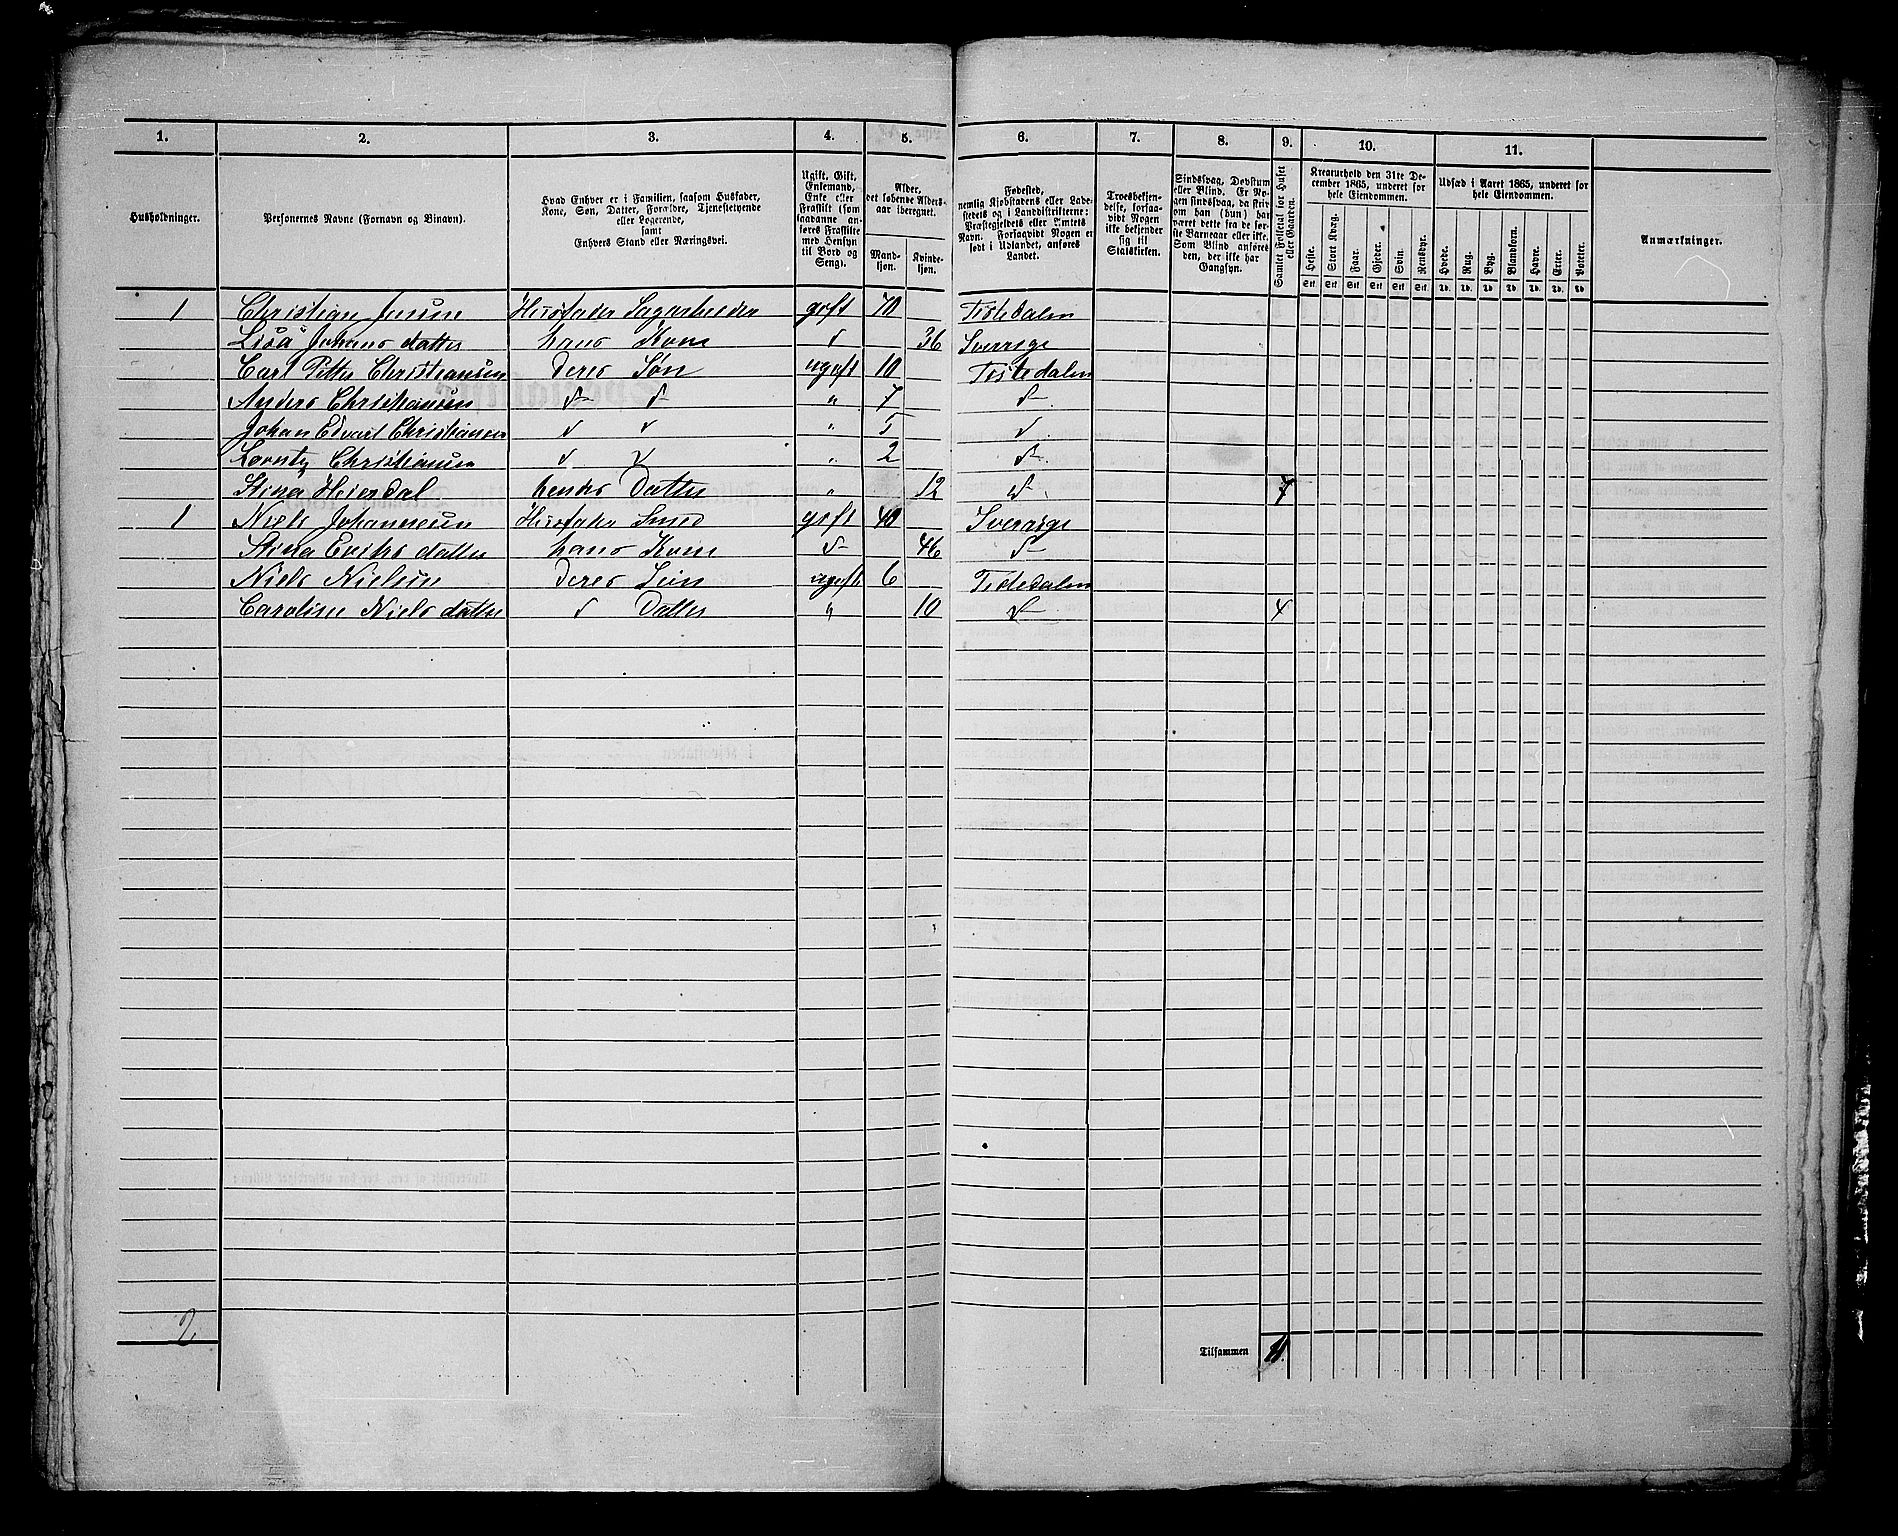 1. 2. 3. 4. 5. 6. 7. 8. 9. 10. 11.
Husholdninger.
Personernes Navne (Fornavn og Binavn).
Hvad Enhver er i Familien, saasom Husfader,
Kone, Søn, Datter, Forældre, Tjenestetyende
eller Logerende,
samt
Enhvers Stand eller Næringsvei.
Ugift, Gift,
Enkemand,
Enke eller
Fraskilt (som
saadanne an-
føres Fraskilte
med Hensyn
til Bord og
Seng).
Alder,
det løbende Alders-
aar iberegnet.
Mand-
kjøn.
Kvinde-
kjøn.
Fødested,
nemlig Kjøbstadens eller Lade-
stedets og i Landdistrikterne:
Præstegjeldets eller Amtets
Navn. Forsaavidt Nogen er
født i Udlandet, anføres
Landet.
Troesbekjen-
delse, forsaa-
vidt Nogen
ikke bekjender
sig til
Statskirken.
Sindssvag, Døvstum
eller Blind. Er No-
gen sindssvag, da skriv
om han (hun) har
været dette fra de før-
ste Barneaar eller ikke.
Som Blind anføres
den, der ikke har
Gangsyn.
Samlet Folketal for Huset
eller Gaarden.
Kreaturhold den 31te De-
cember 1865, underet for
hele Eiendommen.
Heste. Stort Kvæg. Faar. Gjeder. Svin. Rensdyr.
Stk. Stk. Stk. Stk. Stk. Stk.
Udsæd i Aaret 1865, underet for
hele Eiendommen.
Hvede. Rug. Byg. Blandkorn. Havre. Erter. Poteter.
Td. Td. Td. Td. Td. Td. Td.
Anmærkninger.
1 Christian Jensen Huusfader Sagarbeider gift 70 Tistedalen
Lisa Johans datter hans Kone √ 36 Sverrige
Carl Petter Christiansen Deres Søn ugift 10 Tistedalen
Anders Christiansen √ √ " 7 √
Johan Edvart Christiansen √ √ " 5 √
Christiansen √ √ " 2 √
Stina Heierdal hendes Datter " 12 √ 7
1 Niels Johannesen Huusfader Smed gift 40 Sverrige
Stina Eriks datter hans Kone √ 46 √
Niels Nielsen Deres Søn ugift 6 Tistedalen
Caroline Niels datter √ Datter " 10 √ 4
2
Tilsammen 11.